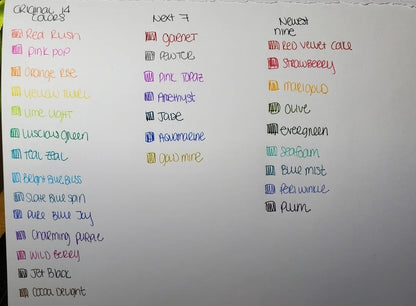 Original 14
Colors
Red Rush
Pink Pop
Orange Rise
Yellow Twirl
Lime Light
Luscious Green
Teal Zeal
Bright Blue Bliss
Slate Blue Spin
Pure Blue Joy
Charming Purple
Wild Berry
Jet Black
Cocoa Delight
Next 7
Garnet
Pewter
Pink Topaz
Amethyst
Jade
Aquamarine
Gold Mine
Newest
nine
Red Velvet Cake
Strawberry
Marigold
Olive
Evergreen
Seafoam
Blue Mist
Periwinkle
Plum